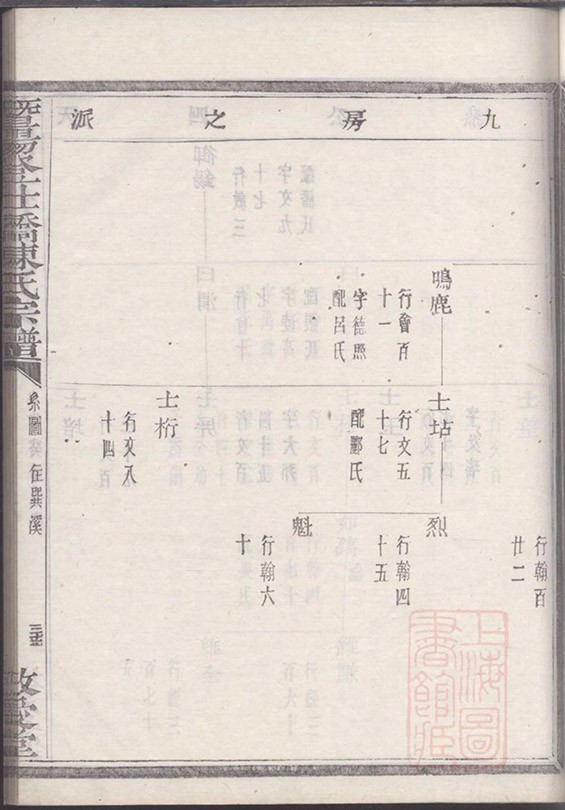 九房之派
行翰百
廿二
鳴鹿
行會百
十一
字德熙
配呂氏
士坫
行文五
十七
配酈氏
烈
行翰四
十五
魁
行翰六
十
士桁
行文八
十四
暨陽登仕橋陳氏宗譜
系圖 癸 在巽溪
上海圖書館藏